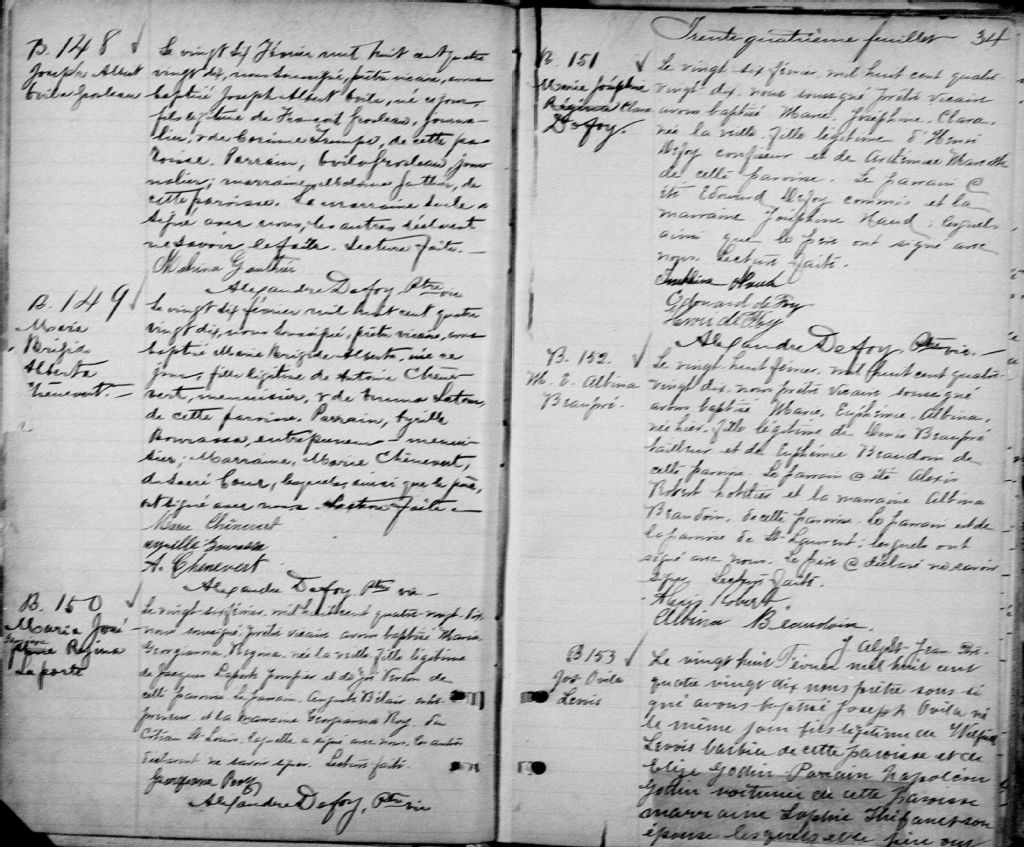 B. 148
Joseph Albert
Ovila Groleau
Le vingt six Février mil huit cent quatre
vingt dix, nous soussigné, prêtre vicaire, avons
baptisé Joseph Albert Ovila, né ce jour,
fils légitime de François Groleau, journa-
lier, & de Corinne de cette pa
roisse. Parrain, Ovila Groleau jour
nalier; marraine, Gauthier, de
cette paroisse. La marraine seule a
signé avec nous, les autres déclarent
ne savoir le faire. Lecture faite. —
Malvina Gauthier
Alexandre Dafoy Ptre vic
B. 149
Marie
Brigide
Alberta
Chênevert. —
Le vingt six février mil huit cent quatre
vingt dix, nous soussigné, prêtre vicaire, avons
baptisé Marie Brigide Alberta, née ce
jour, fille légitime de Antoine Chêne-
vert, menuisier, & de Emma
de cette paroisse. Parrain, Cyrille
Bourassa, entrepreneur-menui-
sier; Marraine, Marie Chênevert,
du Sacré Cœur, lesquels, ainsi que le père,
ont signé avec nous. Lecture faite —
Marie Chênevert
Cyrille Bourassa
A. Chenevert
Alexandre Dafoy Ptre vic —
B. 150
Maria José-
phine Regina
Laporte
Le vingt six février, mil huit cent quatre vingt dix
nous soussigné prêtre vicaire avons baptisé Maria
Georgianna, Regina, née la veille, fille légitime
de Jacques Laporte et de de
cette paroisse. Le parrain Auguste Bélair entre
preneur, et la marraine Georgianna Roy, du
St Louis, laquelle a signé avec nous, les autres
déclarent ne savoir signer. Lecture faite.
Georgianna Roy
Alexandre Dafoy, Ptre vic
Trente quatrième feuillet 34
B. 151
Marie Joséphine
Régina Clara
Defoy.
Le vingt six février, mil huit cent quatre-
vingt dix, nous soussigné prêtre vicaire
avons baptisé Marie, Joséphine, Clara,
née la veille, fille légitime d'Henri
Defoy confiseur et de Artémise Marcotte
de cette paroisse. Le parrain a
été Edouard Defoy commis et la
marraine Joséphine Naud; lesquels
ainsi que le père ont signé avec
nous. Lecture faite.
Joséphine Naud
Edouard de Foy
Henri de Foy
Alexandre Dafoy, Ptre vic. —
B. 152
M. E. Albina
Beaupré.
Le vingt huit février, mil huit cent quatre-
vingt dix, nous prêtre vicaire soussigné
avons baptisé Marie, Euphémie, Albina,
née hier, fille légitime de Denis Beaupré
tailleur et de Euphémie Beaudoin de
cette paroisse. Le parrain a été Alexis
Robert hôtelier et la marraine Albina
Beaudoin, de cette paroisse. Le parrain est de
la paroisse de St Laurent; lesquels ont
signé avec nous. Le père a déclaré ne savoir
signer. Lecture faite.
Alexis Robert.
Albina Beaudoin.
J. Alph. Jean Ptre.
B 153
Jos Ovila
Levis
Le vingt huit Février mil huit cent
quatre vingt dix nous prêtre sous si
gné avons baptisé Joseph Ovila né
le même jour fils légitime de Wilfrid
Levis barbier de cette paroisse et de
Elize Godin Parrain Napoléon
Godin voiturier de cette paroisse
marraine Sophie son
épouse lesquels et le père ont